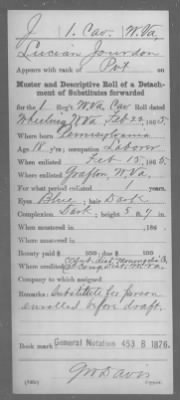 J | 1. Cav. | W. Va.
Lucian Jourdon
Appears with rank of Pvt on
Muster and Descriptive Roll of a Detachment of Substitutes forwarded
for the 1 Reg't W. Va. Cav. Roll dated
Wheeling W. Va. Feb 20, 1865.
Where born Pennsylvania
Age 18 y'rs; occupation Laborer
When enlisted Feb 15, 1865.
Where enlisted Grafton, W. Va.
For what period enlisted 1 years.
Eyes Blue; hair Dark
Complexion Dark; height 5 ft. 7 in.
When mustered in , 186 .
Where mustered in
Bounty paid $ 100; due $ 100
Where credited
Company to which assigned
Remarks: Substitute for person
enrolled before draft.
Book mark: General Notation 453 B 1876.
G W Davis
Copyist.